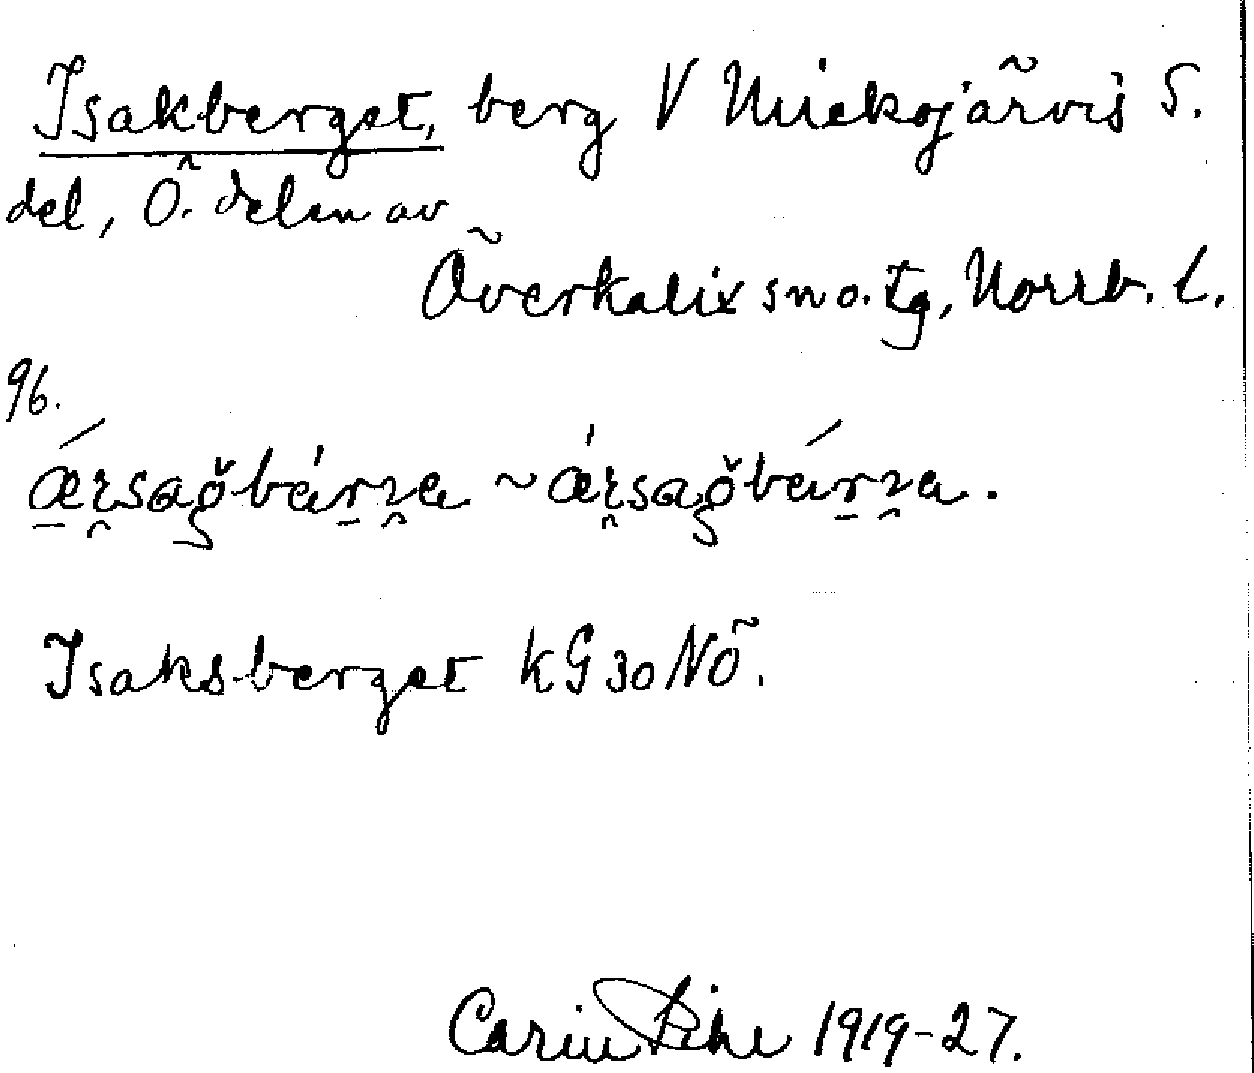 Isakberget, berg V Miekojärvis S.
del, Ö. delen av
Överkalix sn o. tg, Norrb. l.
96.
Isaksberget KG 30 NÖ.
Carin Pihl 1919-27.